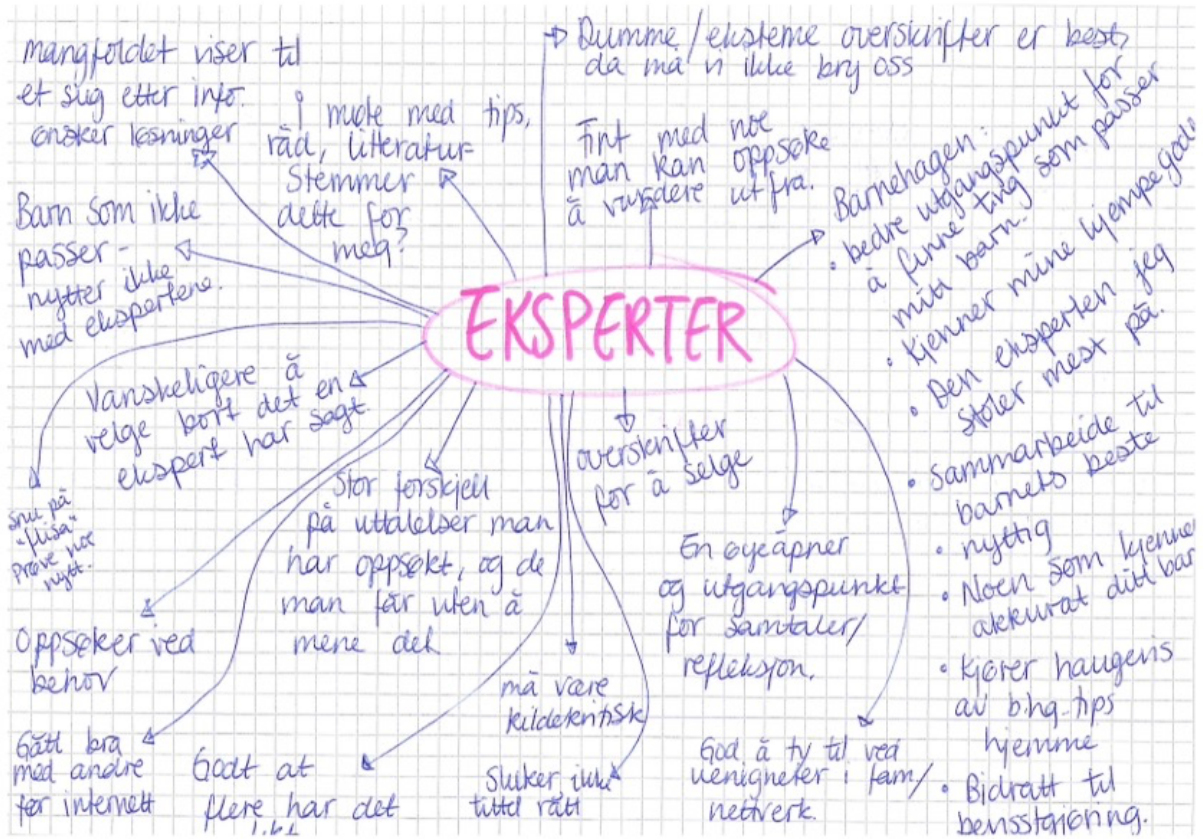 mangfoldet viser til
et sug etter info.
ønsker løsninger
I møte med tips,
råd, litteratur-
Stemmer
dette for
meg?
Dumme/eksteme overskrifter er best,
da må vi ikke bry oss
Fint med noe
man kan oppsøke
å vurdere ut fra.
Barnehagen:
• bedre utgangspunkt for
å finne ting som passer
mitt barn.
• Kjenner mine kjempegodt
• Den eksperten jeg
stoler mest på.
• Sammarbeide til
barnets beste
• nyttig
• Noen som kjenner
akkurat ditt bar
• Kjører haugevis
av bhg.-tips
hjemme
• Bidratt til
bevisstgjøring.
Barn som ikke
passer -
nytter ikke
med ekspertene.
EKSPERTER
Vanskeligere å
velge bort det en
ekspert har sagt.
Snu på
"flisa"
Prøve noe
nytt.
Stor forskjell
på uttalelser man
har oppsøkt, og de
man får uten å
mene det
overskrifter
for å selge
En øyeåpner
og utgangspunkt
for samtaler/
refleksjon.
Oppsøker ved
behov
må være
kildekritisk
Gått bra
med andre
før internett
Godt at
flere har det
likt
Sluker ikke
alltid rått
God å ty til ved
uenigheter i fam/
nettverk.